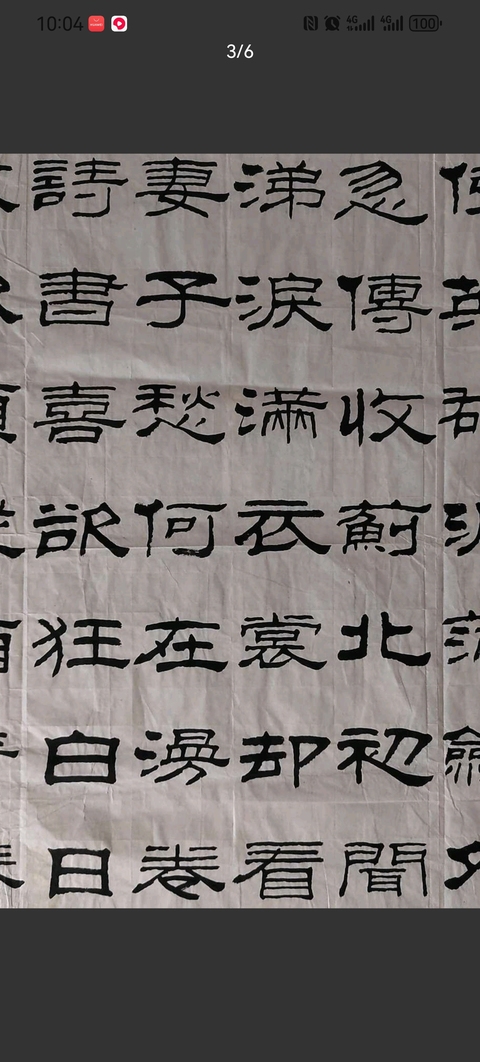 10:04
4G 4G 100
3/6
忽傳收薊北初聞
涕淚滿衣裳却看
妻子愁何在漫卷
詩書喜欲狂白日